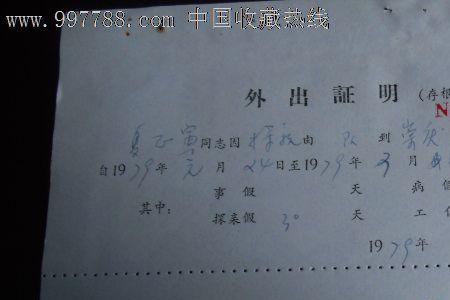 www.997788.com 中国收藏热线
外出証明(存根
N
夏正寅同志因探親由队到崇庆
自1979年元月24日至1979年3月
事假 天 病
其中:
探亲假30天 工
1979年